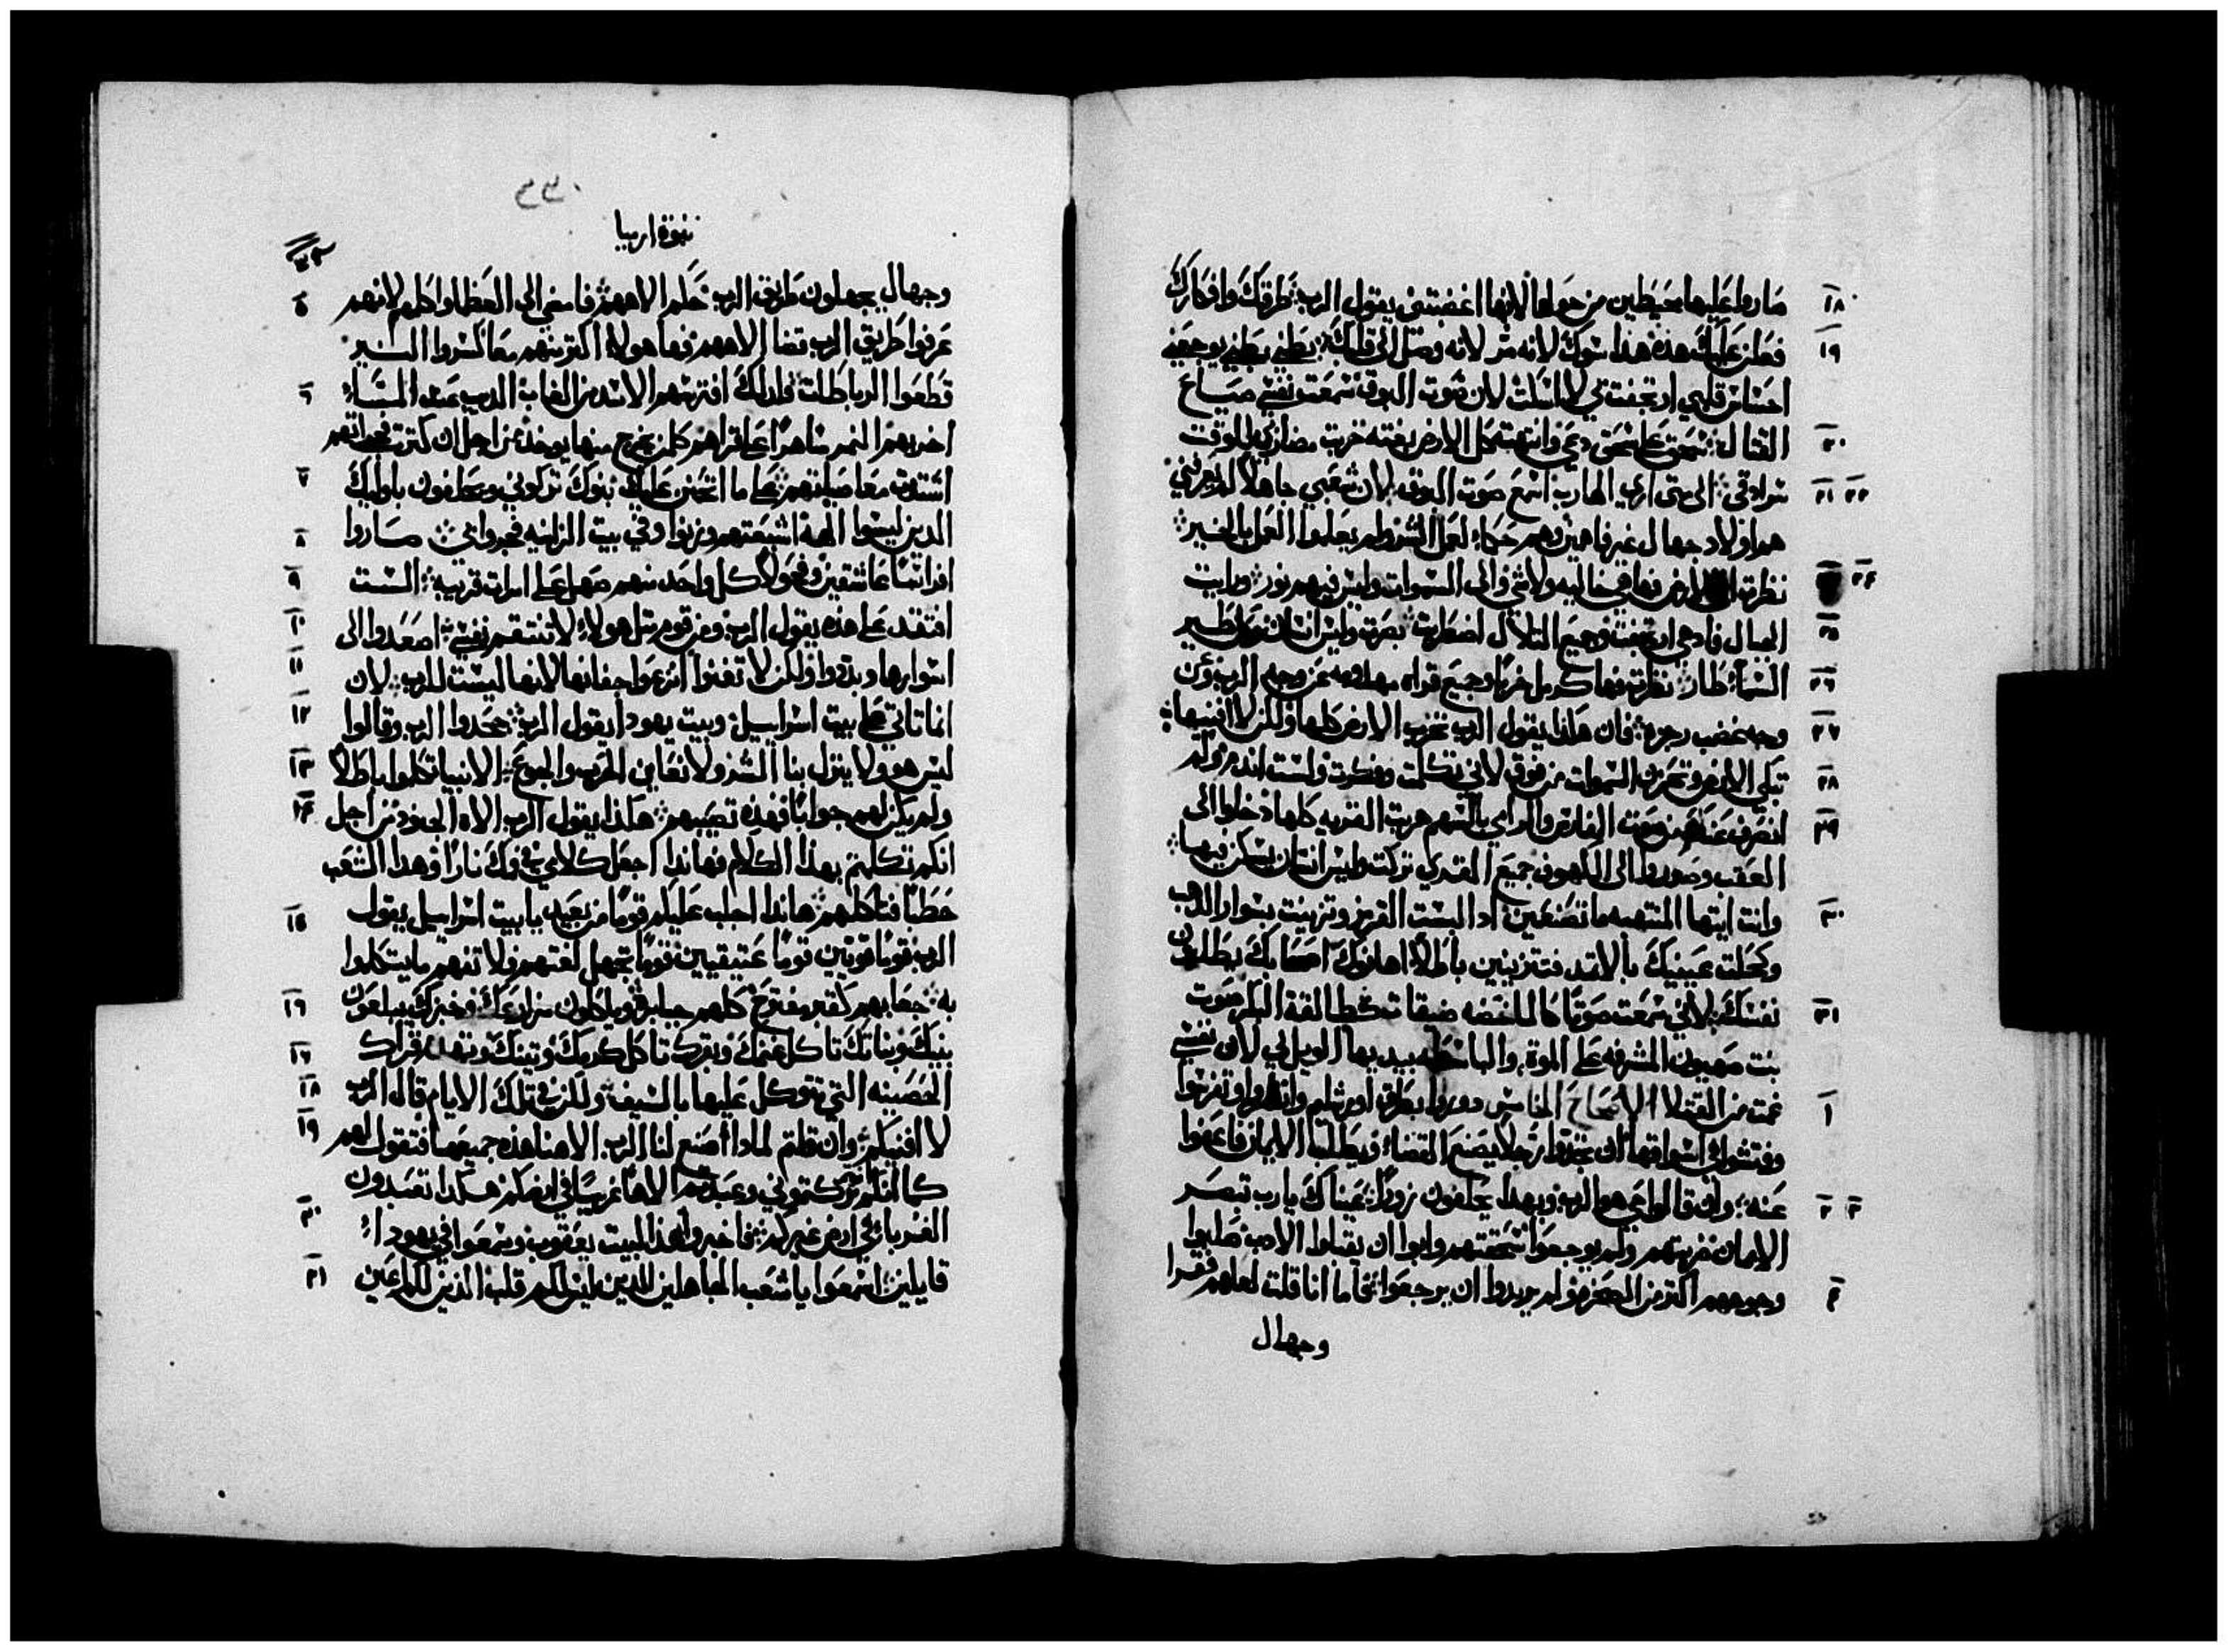 صاروا عليها محيطين من حولها لانها اغضبتني يقول الرب طرقك وافكارك
فعلن عليك هذه هذا سوك لانه مر لانه وصل الى قلبك بطني بطني يوجعني
احساس قلبي ارتجفت في لا اسكت لان صوت البوق سمعت نفسي صياع
القتال سحق على سحق دعي وانتهبت كل الارض بغتة خربت مضاربي للوقت
سرادقي الى متى ارى الهارب اسمع صوت البوق لان شعبي جاهلا لم يعرفني
هم اولاد جهال غير فاهمين وهم حكما لعمل الشر ولم يعلموا العمل بالخير
نظرت الى الارض فها هي خاليه ولا شي والى السموات وليس فيهم نور ورايت
الجبال فاذ هي ارتجفت وجميع التلال اضطربت بصرت وليس انسان وكل طير
السماء طار نظرت فها كرمل خربا وجميع قراه مهدومه من وجه الرب ومن
وجه غضب رجزه فان هكذا يقول الرب تخرب الارض كلها ولكن لا افنيها
تبكي الارض وتحزن السموات من فوق لاني تكلمت وفكرت ولست اندم ولم
انصرف عنه من صوت الفارس والرامي بالسهم هربت القريه كلها دخلوا الى
العقب وصعدوا الى الكهوف جميع القرى تركت وليس انسان يسكن فيها
وانت ايتها المنتهبه ما تصنعين اد البست القرمز وتزينت بسوار الذهب
وكحلت عينيك بالاثمد فتتزينين باطلا اهانوك اصحابك يطلبون
نفسك لاني سمعت صوتا كالماخضه ضيقات كطالقة البكر صوت
بنت صهيون المشرفه على الموت والباسطه بيديها الويل لي لان نفسي
غمت من القتلا الاصحاح الخامس دوروا بطرق اورشليم وانظروا وتفرسوا
وفتشوا في اسواقها ان تجدوا رجلا يصنع القضاء ويطلب الايمان فاعفوا
عنه وان قالوا حي هو الرب وبهذا يحلفون زورا عيناك يارب تبصر
الايمان ضربتهم ولم يوجعوا سحقتهم وابوا ان يقبلوا الادب صلبوا
وجوههم اكثر من الصخر ولم يريدوا ان يرجعوا فاما انا قلت لعلهم فقرا
وجهال
٣٣٠
نبوة ارميا
وجهال يجهلون طريق الرب حكم الاههم فامضي الى العظما واكلمهم لانهم
عرفوا طريق الرب قضا الاههم فها هولاء اكثر منهم معا كسروا النير
قطعوا الرباطات فلذلك افترسهم الاسد من الغاب الديب عند المساء
اخربهم النمر ساهرا على قراهم كلمن يخرج منها يوخذ من اجل ان كثرت خطاياهم
اشتدت معاصياتهم على ما اتحنن عليك بنوك تركوني ويحلفون باوليك
الذين ليسوا الهه اشبعتهم وزنوا وفي بيت الزانيه فجروا صاروا
افراسا عاشقين وفحولا كل واحد منهم صهل على امراة قريبه الست
افتقد على هذه يقول الرب ومن قوم مثل هولاء لا تنتقم نفسي اصعدوا الى
اسوارها وبددوا ولكن لا تفنوا انزعوا جفانها لانها ليست للرب لان
انما تاتي على بيت اسراييل وبيت يهودا يقول الرب جحدوا الرب وقالوا
ليس هو ولا ينزل بنا الشر ولا نعاين الحرب والجوع الانبيا تكلموا باطلا
ولم يكن لهم جوابا فهذه تصيبهم هكذا يقول الرب الاه الجنود من اجل
انكم تكلمتم بهذا الكلام فهاندا اجعل كلامي في فمك نارا وهذا الشعب
حطبا فتاكلهم هاندا اجلب عليكم قوما من بعيد يا بيت اسراييل يقول
الرب قوما قويين قوما عتيقيين قوما تجهل لغتهم ولا تفهم ما يتكلموا
به جعابهم كقبر مفتوح كلهم جبابره وياكلون مزارعك وخبزك يبلعون
بنيك وبناتك تاكل غنمك وبقرك تاكل كرمك وتينك وتهدم قراك
الحصينه التي تتوكل عليها بالسيف ولكن في تلك الايام قال الرب
لا افنيكم وان قلتم لماذا صنع لنا الرب الاهنا هذه جميعها فتقول لهم
كما انكم تركتموني وعبدتم الاها غريبا في ارضكم هكذا تعبدون
الغربا في ارض غيركم فاخبروا بهذا لبيت يعقوب وسمعوا في يهودا
قايلين اسمعوا يا شعب الجاهلين الذين ليس لكم قلب الذين لكم اعين